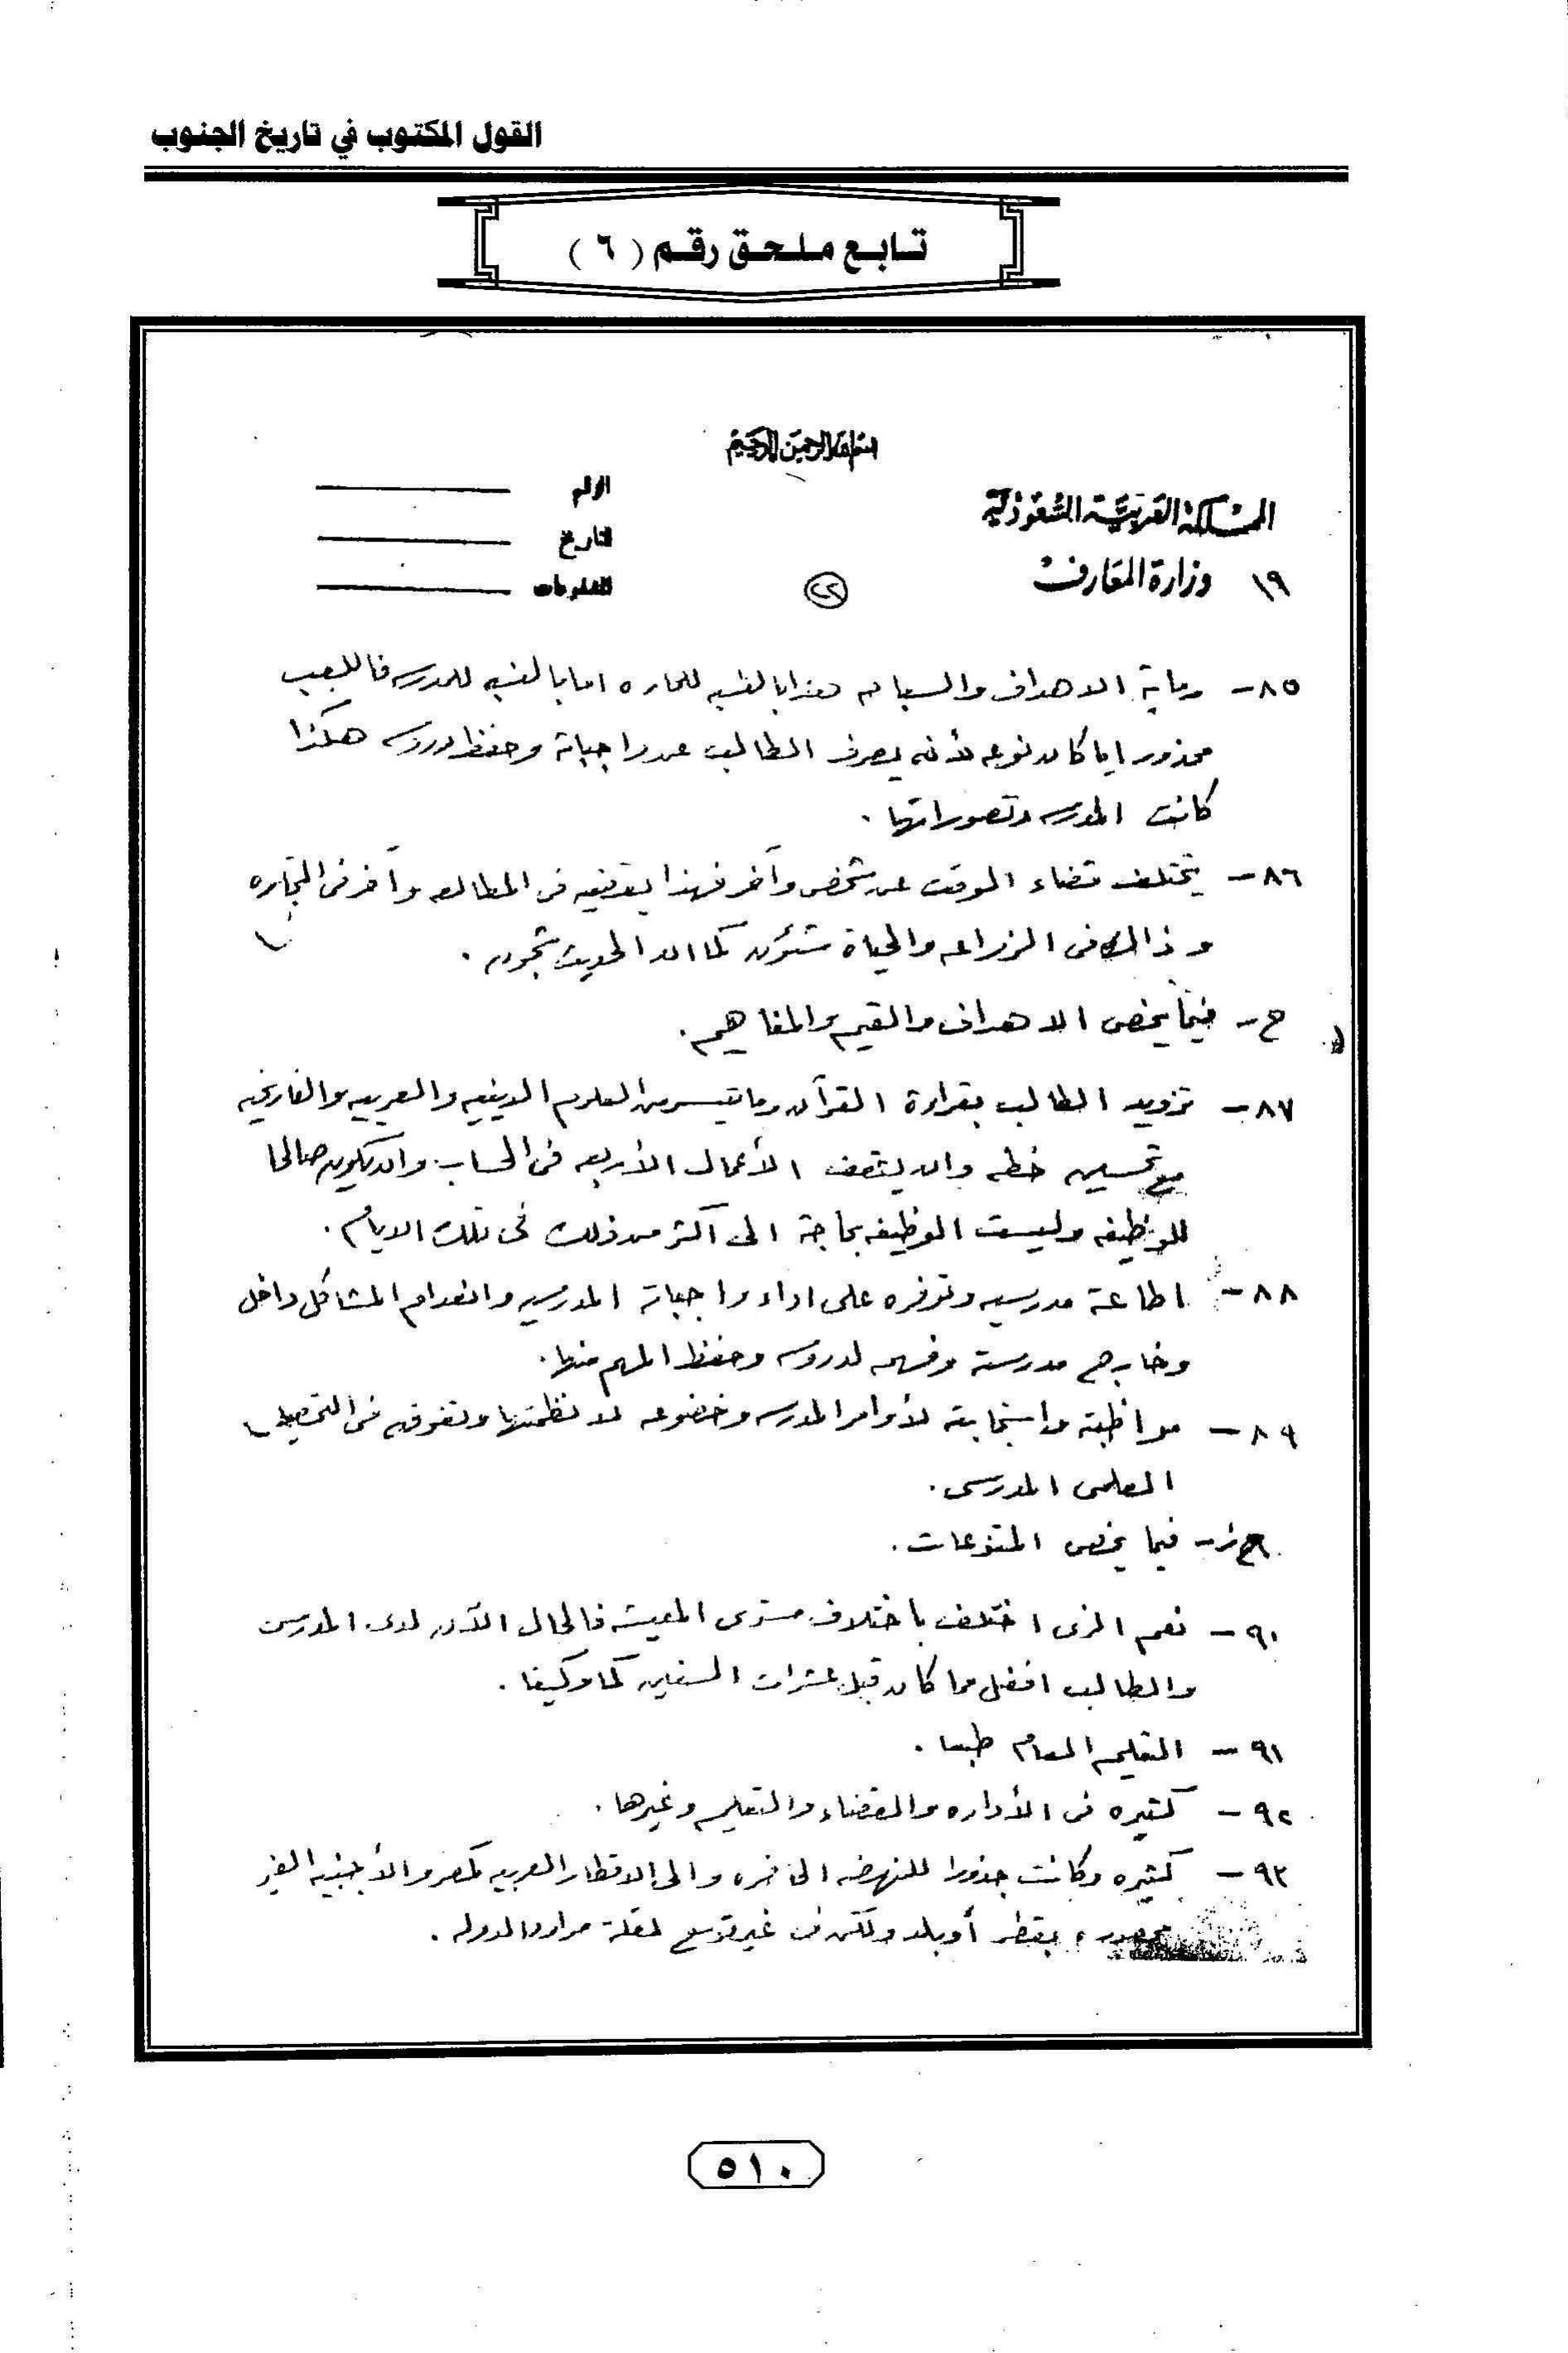 القول المكتوب في تاريخ الجنوب
تابع ملحق رقم ( ٦ )
بسم الله الرحمن الرحيم
المملكة العربية السعودية
وزارة المعارف
١٩
٢٢
الرقم
التاريخ
الملفوظات
٨٥ - رماية الاهداف والسباحه هذا بالنسبه للحاره اما بالنسبه للمدرسه فاللعب
محذور ايا كان نوعه لأنه يصرف الطالب عن واجباته وحفظ دروسه هكذا
كانت المدرسه وتصوراتها .
٨٦ - يختلف قضاء الوقت عن شخص وآخر فهذا يقضيه فى المطالعه وآخر فى التجاره
وذالك فى الزراعه والحياة شئون كما ان الحديث شجون .
ح - فيما يخص الاهداف والقيم والمفاهيم .
٨٧ - تزويد الطالب بقراءة القرآن وما تيسر من العلوم الدينيه والعربيه والتاريخيه
مع تحسين خطه وان يثقف الأعمال الأربعه فى الحساب وان يكون صالحا
للوظيفه وليست الوظيفه بحاجة الى اكثر من ذلك فى تلك الايام .
٨٨ - اطاعة مدرسيه وتوفره على اداء واجباته المدرسيه وانعدام المشاكل داخل
وخارج مدرسته وفهمه لدروسه وحفظ المهم منها .
٨٩ - مواظبته واستجابته لأوامر المدرسه وخضوعه لانظمتها وتفوقه فى التحصيل
العلمى المدرسى .
فيما يخص المتنوعات .
٩٠ - نعم الزى اختلف باختلاف مستوى المعيشه فالحال الآن لدى المدرس
والطالب افضل مما كان قبل عشرات السنين كما وكيفا .
٩١ - التعليم العام طبعا .
٩٢ - كثيره فى الأداره والقضاء والتعليم وغيرها .
٩٣ - كثيره وكانت جذورا للنهضه الحاضره والى الاقطار العربيه كمصر والأجنبيه الغير
محصوره بقطر أو بلد ولكن فى غير توسع لقلة موارد الدوله .
٥١٠